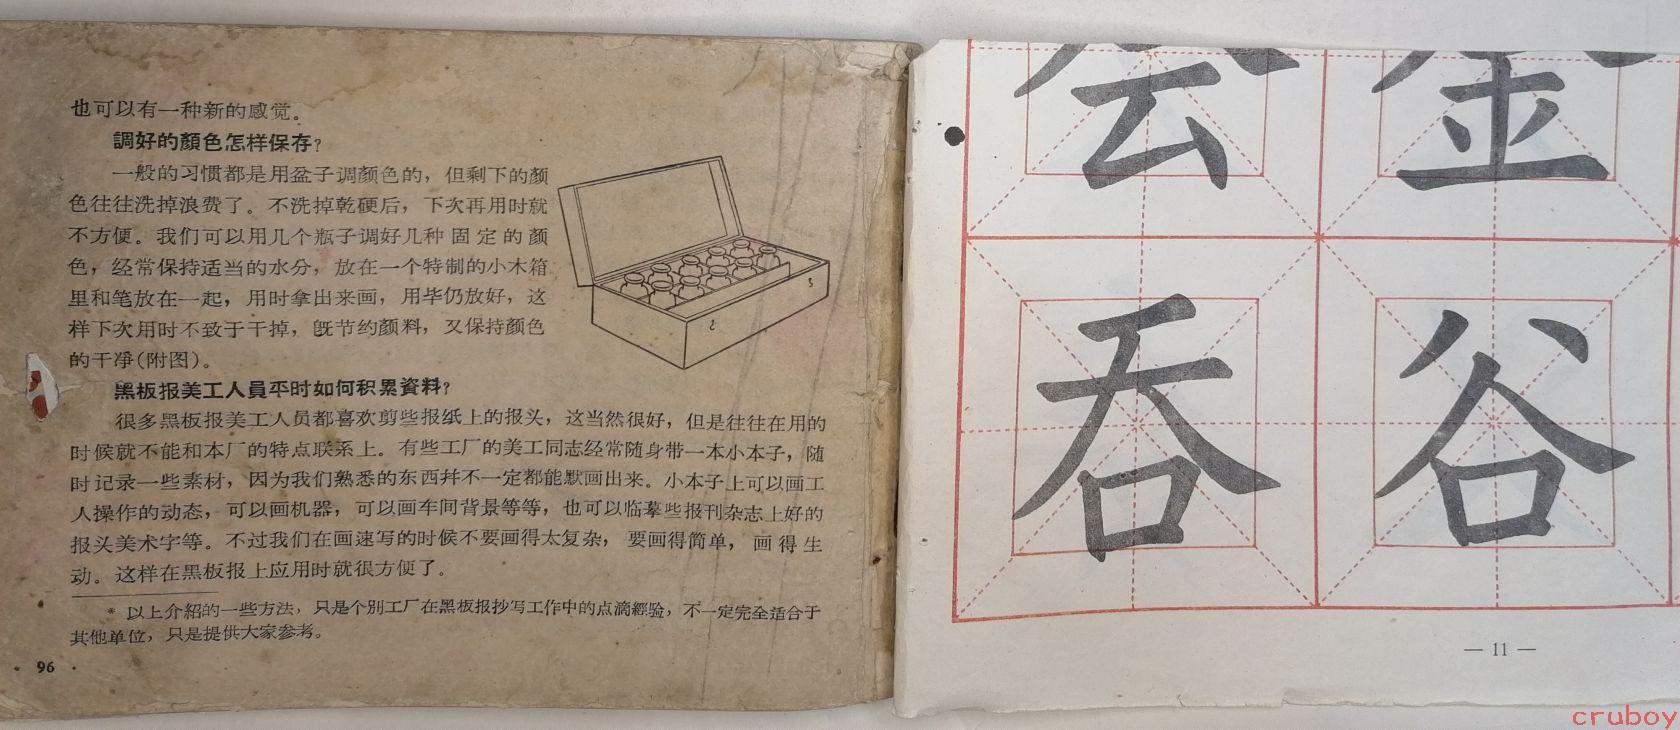 也可以有一种新的感觉。
調好的顏色怎样保存？
一般的习惯都是用盆子调颜色的，但剩下的颜
色往往洗掉浪费了。不洗掉乾硬后，下次再用时就
不方便。我们可以用几个瓶子调好几种固定的颜
色，经常保持适当的水分，放在一个特制的小木箱
里和笔放在一起，用时拿出来画，用毕仍放好，这
样下次用时不致于干掉，既节约颜料，又保持颜色
的干净(附图)。
黑板报美工人員平时如何积累資料？
很多黑板报美工人员都喜欢剪些报纸上的报头，这当然很好，但是往往在用的
时候就不能和本厂的特点联系上。有些工厂的美工同志经常随身带一本小本子，随
时记录一些素材，因为我们熟悉的东西幷不一定都能默画出来。小本子上可以画工
人操作的动态，可以画机器，可以画车间背景等等，也可以临摹些报刊杂志上好的
报头美术字等。不过我们在画速写的时候不要画得太复杂，要画得简单，画得生
动。这样在黑板报上应用时就很方便了。
* 以上介紹的一些方法，只是个別工厂在黑板报抄写工作中的点滴經驗，不一定完全适合于
其他单位，只是提供大家参考。
· 96 ·
会金
吞谷
— 11 —
cruboy